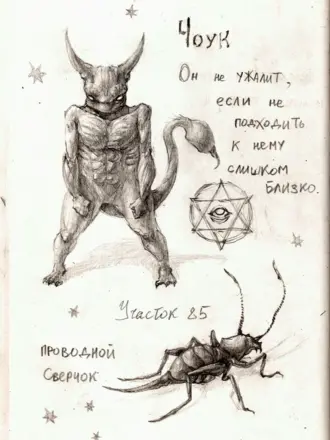 Чоук
Он не ужалит,
если не
подходить
к нему
слишком
близко.
Участок 85
проводной
сверчок